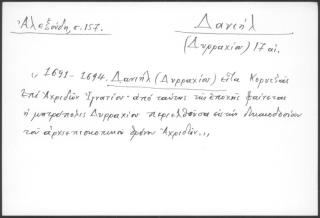 Ἀλεξούδη, σ. 157.
Δανιήλ
(Δυρραχίου) 17 αἰ.
"1691 - 1694. Δανιήλ (Δυρραχίου) εἶτα Κορυτσᾶς
Ἐπί Ἀχριδῶν Ἰγνατίου· ἀπό ταύτης τῆς ἐποχῆς φαίνεται
ἡ μητρόπολις Δυρραχίου περιελθοῦσα εἰς τήν δικαιοδοσίαν
τοῦ ἀρχιεπισκοπικοῦ θρόνου Ἀχριδῶν."